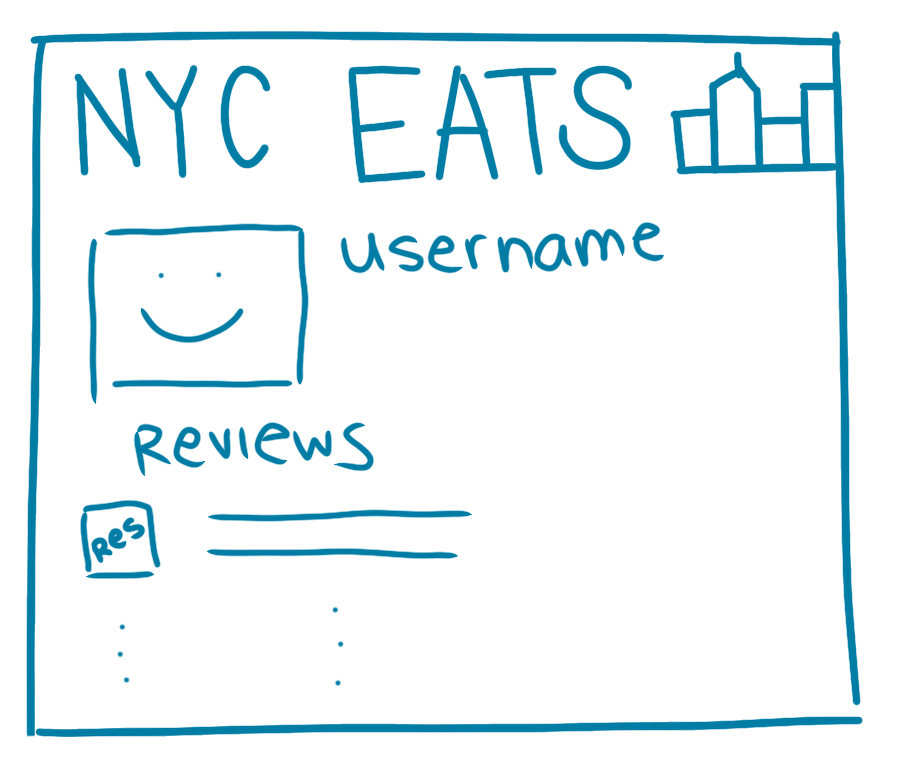 NYC EATS
username
Reviews
Res